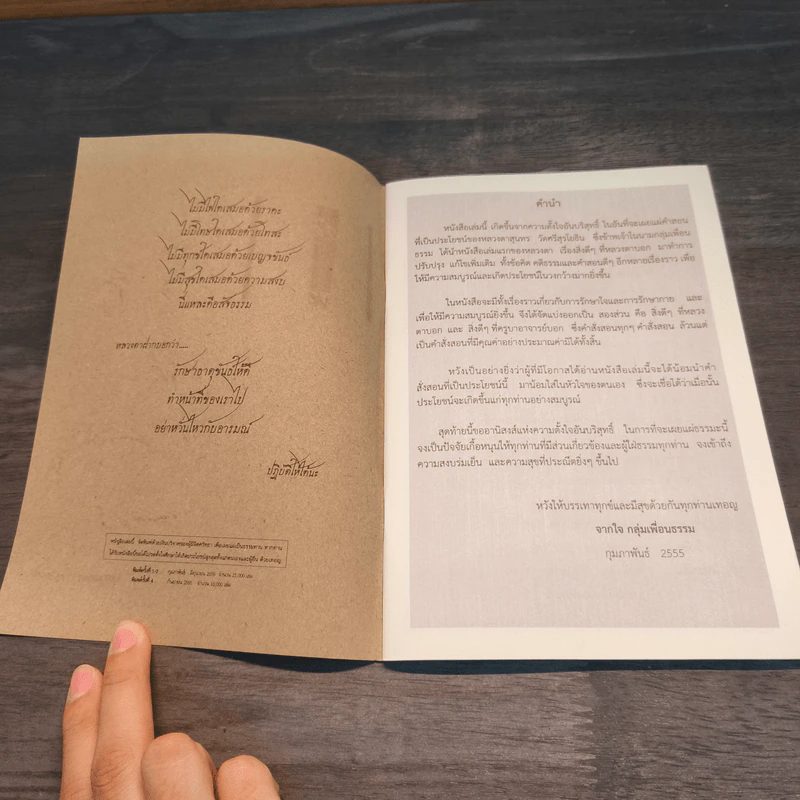 ไม่มีไฟใดเสมอด้วยราคะ
ไม่มีโทษใดเสมอด้วยโทสะ
ไม่มีทุกข์ใดเสมอด้วยเบญจขันธ์
ไม่มีสุขใดเสมอด้วยความสงบ
นี่แหละคือสัจธรรม
หลวงตาฝากบอกว่า.....
รักษาธาตุขันธ์ให้ดี
ทำหน้าที่ของเราไป
อย่าหวั่นไหวกับอารมณ์
ปฏิบัติให้ได้นะ
หนังสือเล่มนี้ จัดพิมพ์ด้วยเงินบริจาคของผู้มีจิตศรัทธา เพื่อเผยแผ่เป็นธรรมทาน หากท่าน
พิมพ์ครั้งที่ 1-3 กุมภาพันธ์ - มิถุนายน 2555 จำนวน 25,000 เล่ม
พิมพ์ครั้งที่ 4 กันยายน 2555 จำนวน 10,000 เล่ม
คำนำ
หนังสือเล่มนี้ เกิดขึ้นจากความตั้งใจอันบริสุทธิ์ ในอันที่จะเผยแผ่คำสอน
ที่เป็นประโยชน์ของหลวงตาสุนทร วัดศรีสุรโยธิน ซึ่งข้าพเจ้าในนามกลุ่มเพื่อน
ธรรม ได้นำหนังสือเล่มแรกของหลวงตา เรื่องสิ่งดีๆ ที่หลวงตาบอก มาทำการ
ปรับปรุง แก้ไขเพิ่มเติม ทั้งข้อคิด คติธรรมและคำสอนดีๆ อีกหลายเรื่องราว เพื่อ
ให้มีความสมบูรณ์และเกิดประโยชน์ในวงกว้างมากยิ่งขึ้น
ในหนังสือจะมีทั้งเรื่องราวเกี่ยวกับการรักษาใจและการรักษากาย และ
เพื่อให้มีความสมบูรณ์ยิ่งขึ้น จึงได้จัดแบ่งออกเป็น สองส่วน คือ สิ่งดีๆ ที่หลวง
ตาบอก และ สิ่งดีๆ ที่ครูบาอาจารย์บอก ซึ่งคำสั่งสอนทุกๆ คำสั่งสอน ล้วนแต่
เป็นคำสั่งสอนที่มีคุณค่าอย่างประมาณค่ามิได้ทั้งสิ้น
หวังเป็นอย่างยิ่งว่าผู้ที่มีโอกาสได้อ่านหนังสือเล่มนี้จะได้น้อมนำคำ
สั่งสอนที่เป็นประโยชน์นี้ มาน้อมใส่ในหัวใจของตนเอง ซึ่งจะเชื่อได้ว่าเมื่อนั้น
ประโยชน์จะเกิดขึ้นแก่ทุกท่านอย่างสมบูรณ์
สุดท้ายนี้ขออานิสงส์แห่งความตั้งใจอันบริสุทธิ์ ในการที่จะเผยแผ่ธรรมะนี้
จงเป็นปัจจัยเกื้อหนุนให้ทุกท่านที่มีส่วนเกี่ยวข้องและผู้ใฝ่ธรรมทุกท่าน จงเข้าถึง
ความสงบร่มเย็น และความสุขที่ประณีตยิ่งๆ ขึ้นไป
หวังให้บรรเทาทุกข์และมีสุขด้วยกันทุกท่านเทอญ
จากใจ กลุ่มเพื่อนธรรม
กุมภาพันธ์ 2555